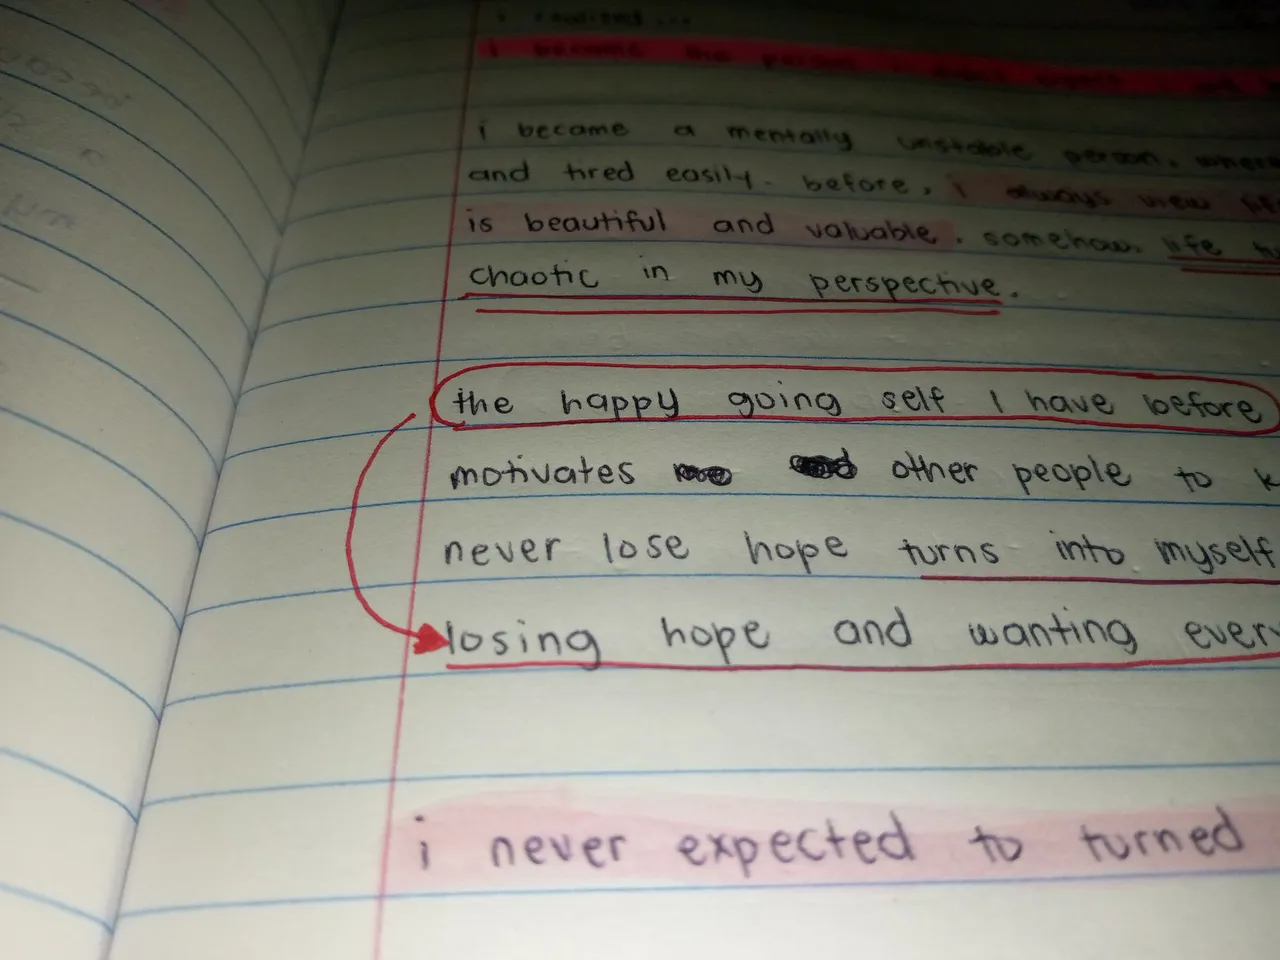 i realized...
i became the person
i became a mentally unstable person, where
and tired easily. before, i always view life
is beautiful and valuable. somehow, life
chaotic in my perspective.
the happy going self I have before
motivates other people to
never lose hope turns into myself
losing hope and wanting every
i never expected to turned